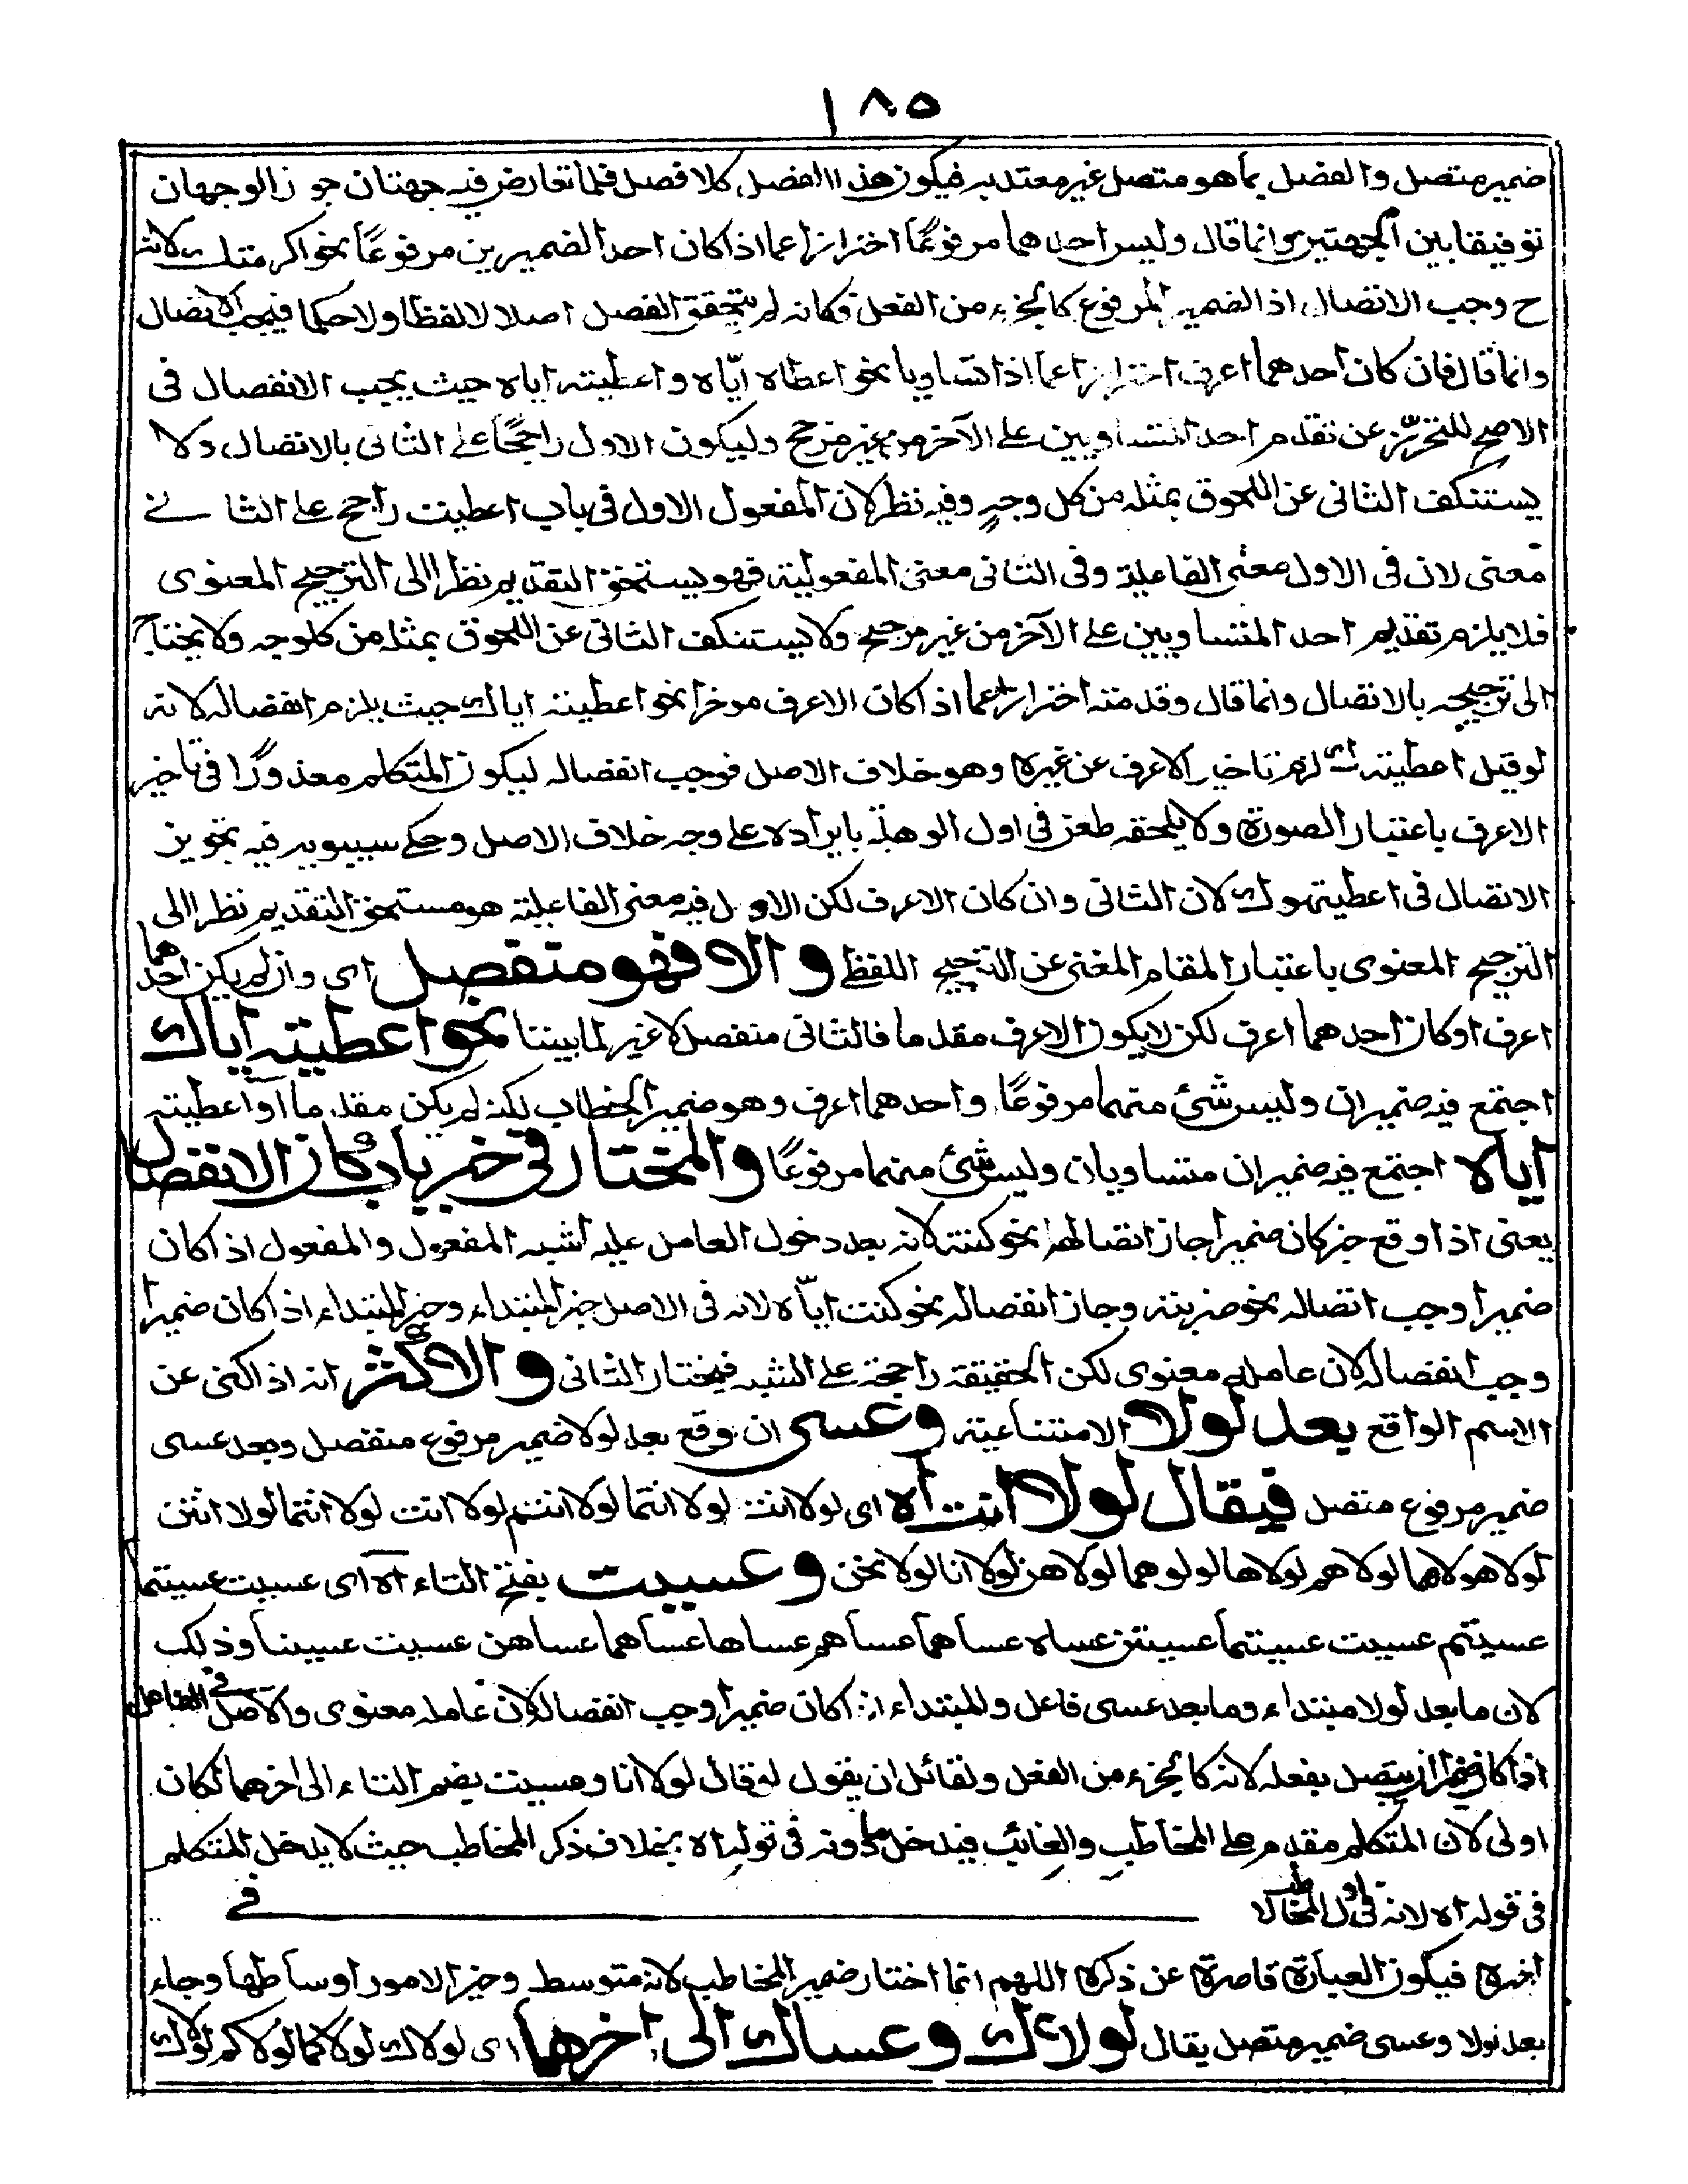 ١٨٥
ضمير متصل والفصل بما هو متصل غير معتد به فيكون هذا الفصل كلا فصل فلما تعارض فيه جهتان جوز الوجهان
توفيقا بين الجهتين وانما قال وليس احدهما مرفوعًا احترازا عما اذا كان احد الضميرين مرفوعًا نحو اكرمتك لانه
ح وجب الاتصال اذ الضمير المرفوع كالجزء من الفعل فكانه لم يتحقق الفصل اصلا لا لفظا ولا حكما فيجب الاتصال
وانما قال فان كان احدهما اعرف احترازا عما اذا تساويا نحو اعطاه ايّاه واعطيته اياه حيث يجب الانفصال فى
الاصح للتحرّز عن تقدم احد المتساويين على الآخر من غير مرجح وليكون الاول راجحًا على الثانى بالاتصال ولا
يستنكف الثانى عن اللحوق بمثله من كل وجهٍ وفيه نظر لان المفعول الاول فى باب اعطيت راجح على الثانى
معنى لان فى الاول معنى الفاعلية وفى الثانى معنى المفعولية فهو يستحق التقديم نظرا الى الترجيح المعنوى
فلا يلزم تقديم احد المتساويين على الآخر من غير مرجح ولا يستنكف الثانى عن اللحوق بمثله من كل وجه ولا يحتاج
الى ترجيحه بالاتصال وانما قال وقدمته احترازا عما اذا كان الاعرف موخرا نحو اعطيته اياك حيث يلزم انفصاله لانه
لو قيل اعطيتهك لزم تاخير الاعرف عن غيره وهو خلاف الاصل فوجب انفصاله ليكون المتكلم معذورًا فى تاخير
الاعرف باعتبار الصورة ولا يلحقه طعن فى اول الوهلة بايراده على وجه خلاف الاصل وحكى سيبويه فيه تجويز
الاتصال فى اعطيتهوك لان الثانى وان كان الاعرف لكن الاول فيه معنى الفاعلية هو مستحق التقديم نظرا الى
الترجيح المعنوى باعتبار المقام المغنى عن الترجيح اللفظ والا فهو منفصل اى وان لم يكن احدهما
اعرف او كان احدهما اعرف لكن لا يكون الاعرف مقدما فالثانى منفصل لا غير لما بيننا نحو اعطيته اياك
اجتمع فيه ضميران وليس شئ منهما مرفوعًا واحدهما اعرف وهو ضمير الخطاب لكنه لم يكن مقدما او اعطيته
اياه اجتمع فيه ضميران متساويان وليس شئ منهما مرفوعًا والمختار فى خبر باب كان الانفصال
يعنى اذا وقع خبر كان ضميرا جاز اتصالها نحو كنته لانه بعد دخول العامل عليه اشبه المفعول والمفعول اذا كان
ضميرا وجب اتصاله نحو ضربته وجاز انفصاله نحو كنت ايّاه لانه فى الاصل خبر المبتداء وخبر المبتداء اذا كان ضميرا
وجب انفصاله لان عامله معنوى لكن الحقيقة راجحة على الشبه فيختار الثانى والاكثر انه اذا كنى عن
الاسم الواقع بعد لولا الامتناعية وعسى ان وقع بعد لولا ضمير مرفوع منفصل وبعد عسى
ضمير مرفوع متصل فيقال لولا انت اه اى لولا انت لولا انتما لولا انتم لولا انت لولا انتما لولا انتن
لولا هو لولا هما لولا هم لولا ها لولو هما لولا هن لولا انا لولا نحن وعسيت بفتح التاء اه اى عسيت عسيتما
عسيتم عسيت عسيتما عسيتن عساه عساهما عساهم عساها عساهما عساهن عسيت عسينا وذلك
لان ما بعد لولا مبتداء وما بعد عسى فاعل والمبتداء اذا كان ضميرا وجب انفصاله لان عامله معنوى والاصل فى الفاعل
اذا كان ضميرا ان يتصل بفعله لانه كالجزء من الفعل ولقائل ان يقول لو قال لولا انا وعسيت بضم التاء الى اخرهما لكان
اولى لان المتكلم مقدم على المخاطب والغائب فيدخل ما دونه فى قوله اه بخلاف ذكر المخاطب حيث لا يدخل المتكلم
فى قوله اه لانه فى اول المخاطب لا فى
اخره فيكون العبارة قاصرة عن ذكره اللهم انما اختار ضمير المخاطب لانه متوسط وخير الامور اوساطها وجاء
بعد لولا وعسى ضمير متصل يقال لولاك وعساك الى اخرها اى لولاك لولاكما لولاكم لولاك